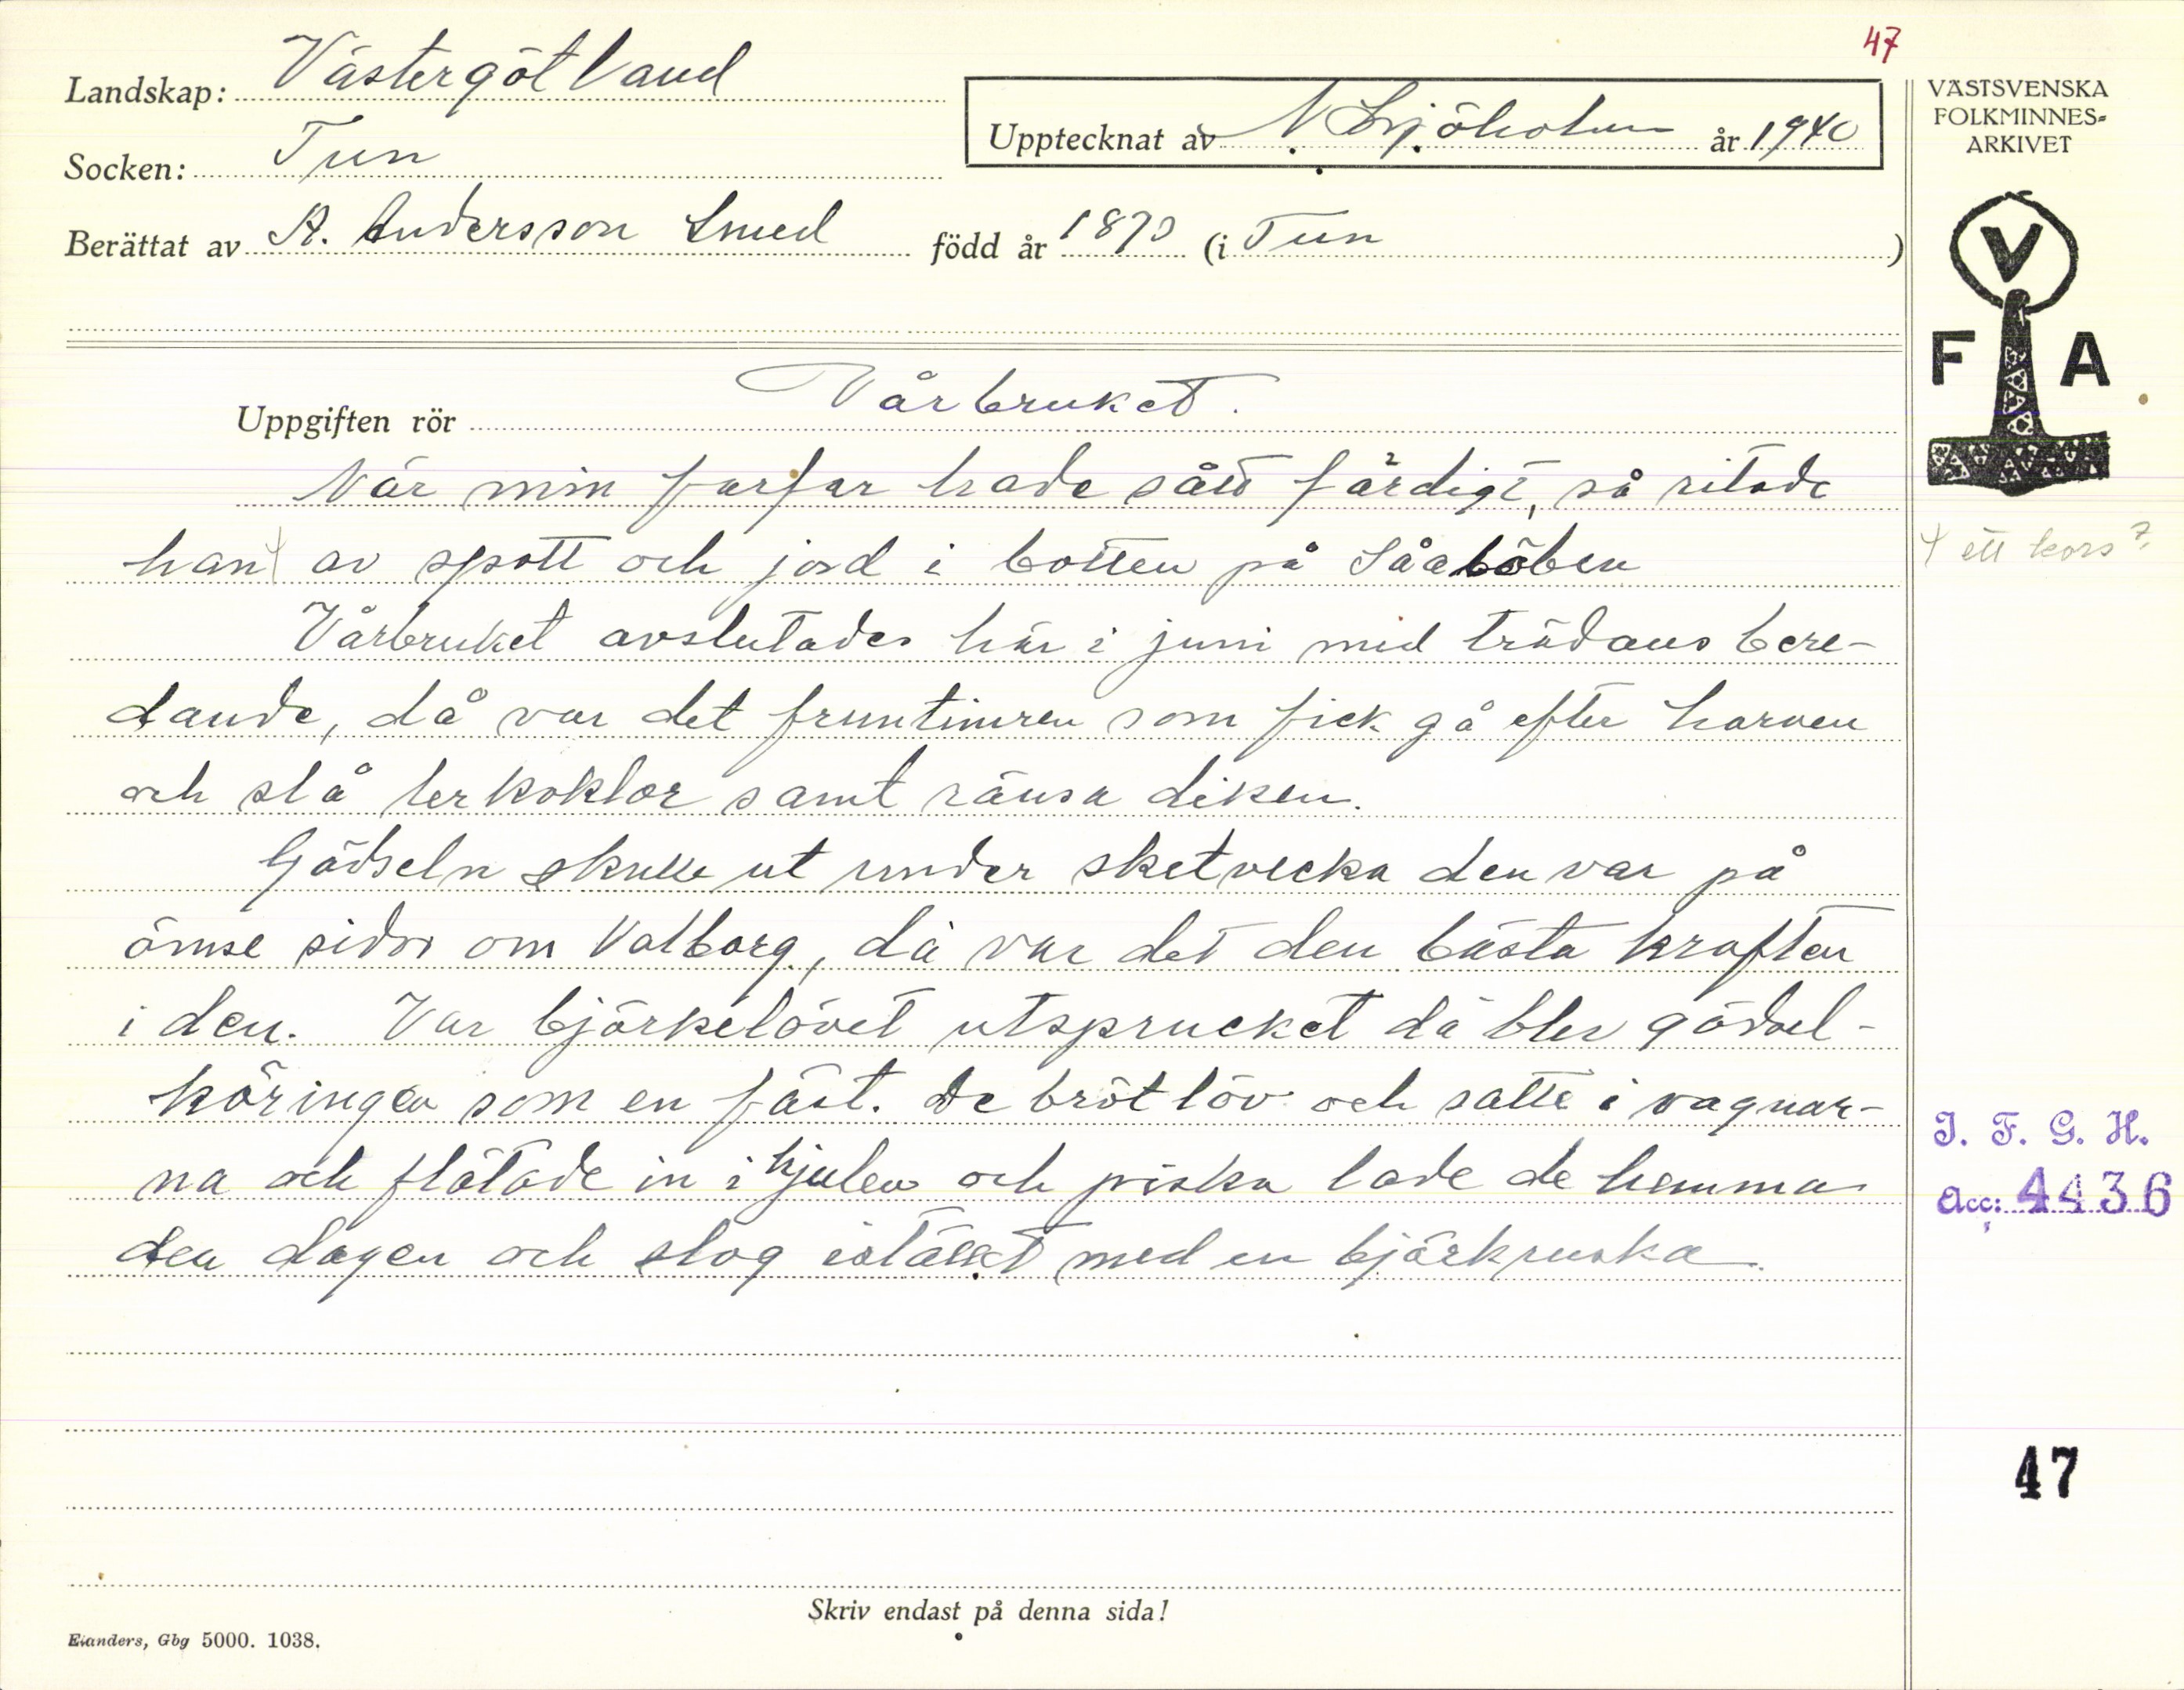 47
Landskap: Västergötland
Socken: Tun
Upptecknat av N Sjöholm år 1940
Berättat av A. Andersson Smed född år 1870 (i Tun )
VÄSTSVENSKA
FOLKMINNES-
ARKIVET
V
F A
Uppgiften rör Vårbruket.
När min farfar hade sått färdigt, så ritade
han + av spott och jord i botten på Såaböben
+ ett kors?
Vårbruket avslutades här i juni med trädans bere-
dande, då var det fruntimren som fick gå efter harven
och slå lerkoklor samt ränsa diken.
Gödseln skulle ut under sketvecka den var på
ömse sidor om Valborg, då var det den bästa kraften
i den. Var björkelövet utsprucket då blev gödsel-
köringen som en fäst. De bröt löv och satte i vagnar-
na och flätade in i hjulen och piska lade de hemma
den dagen och slog istället med en björkruska.
I. F. G. H.
Acc: 4436
47
Skriv endast på denna sida!
Elanders, Gbg 5000. 1038.